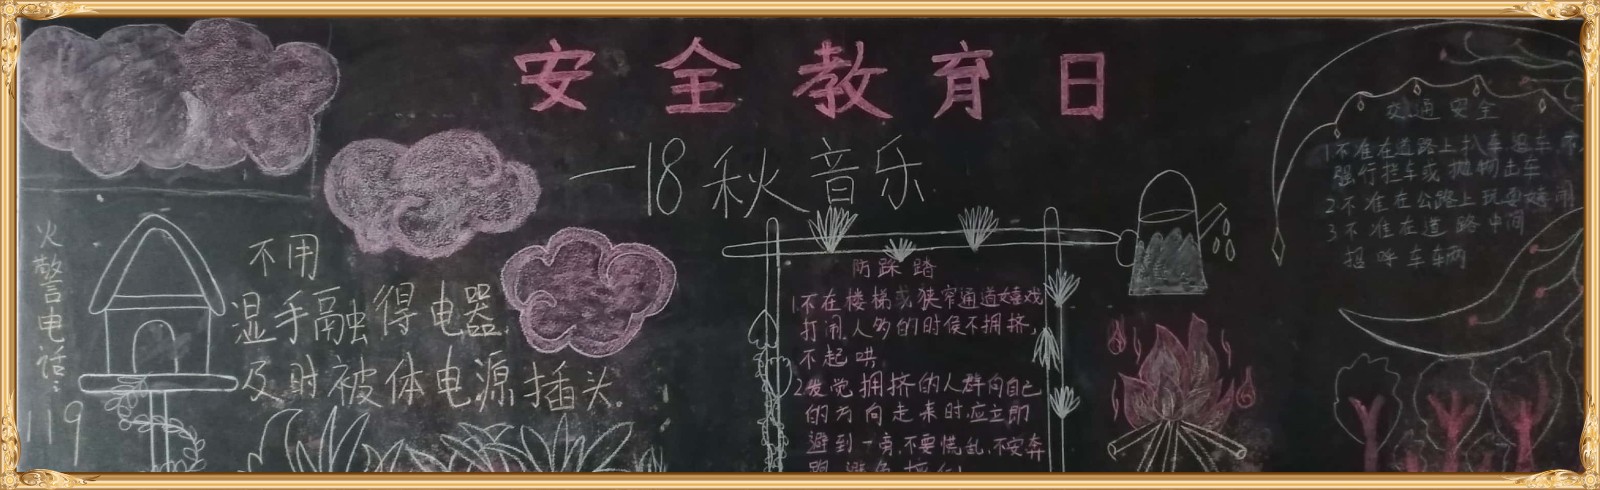 安全教育日
一18秋音乐
火警电话:
119
不用
湿手融得电器.
及时被体电源插头.
防踩踏
1不在楼梯或狭窄通道嬉戏
打闹.人多的时候不拥挤,
不起哄.
2发觉拥挤的人群向自己
的方向走来时应立即
避到一旁,不要慌乱,不安奔
跑 避免
交通安全
1不准在道路上扒车追车
强行拦车或抛物击车
2不准在公路上玩耍嬉闹
3不准在道路中间
招呼车辆